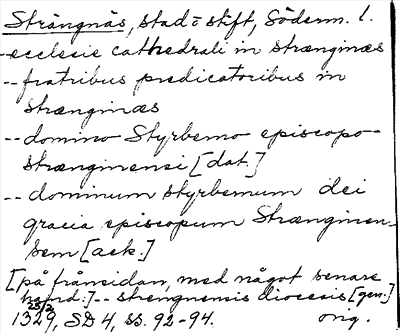 Strängnäs, stad o stift, Söderm. l.
-- ecclesie cathedrali in strænginæs
-- fratribus predicatoribus in
strænginæs
-- domino Styrbemo episcopo
strænginensi [dat.]
-- dominum styrbernum dei
gracia episcopum Strænginen-
sem [ack.]
[på frånsidan, med något senare
hand:] -- strengnemis diocesis [gen.]
1329 25/2, SD 4, ss. 92-94. orig.